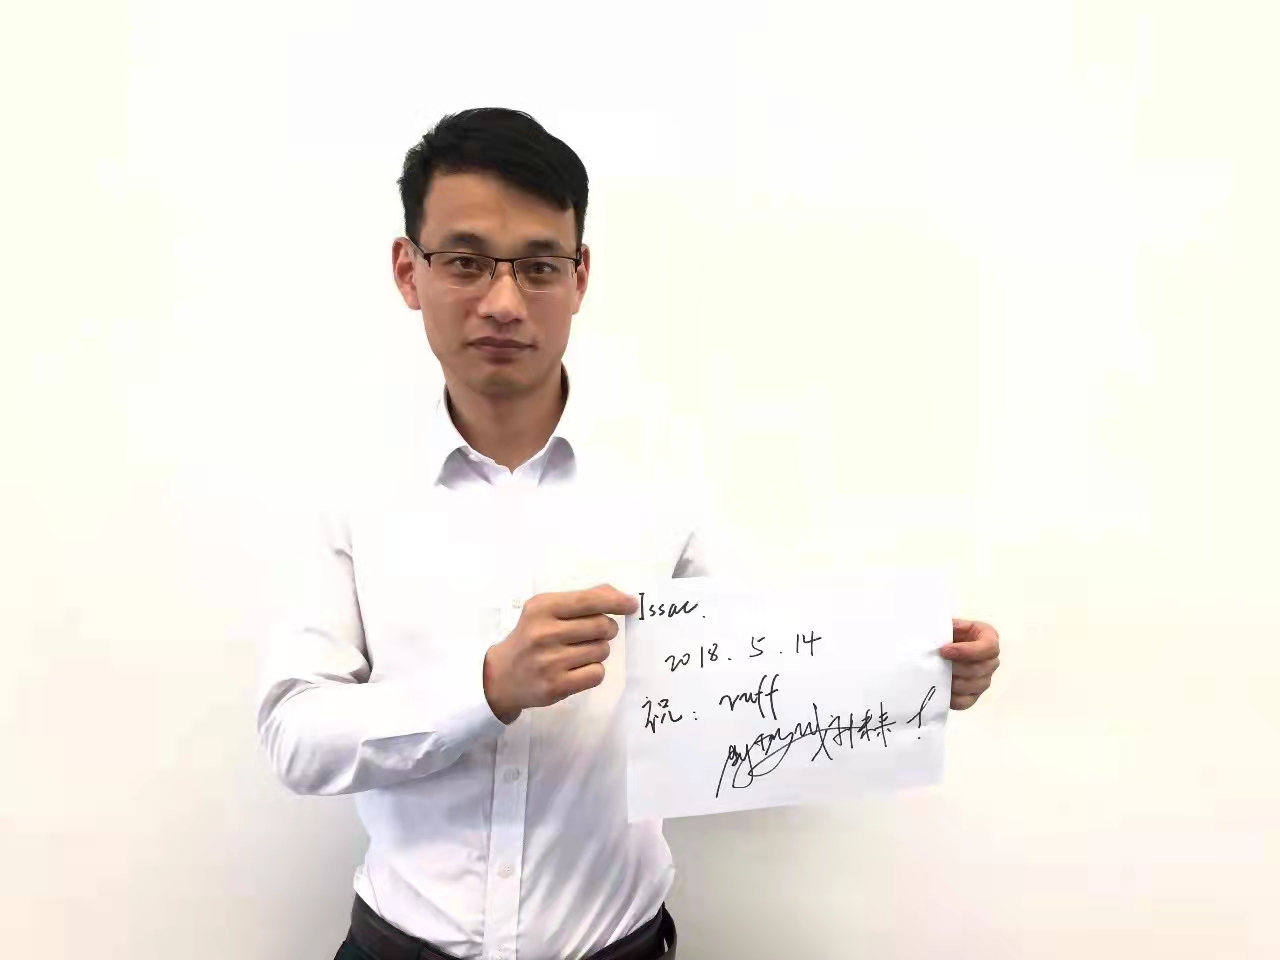 Issac.
2018.5.14
祝: ruff
未来!